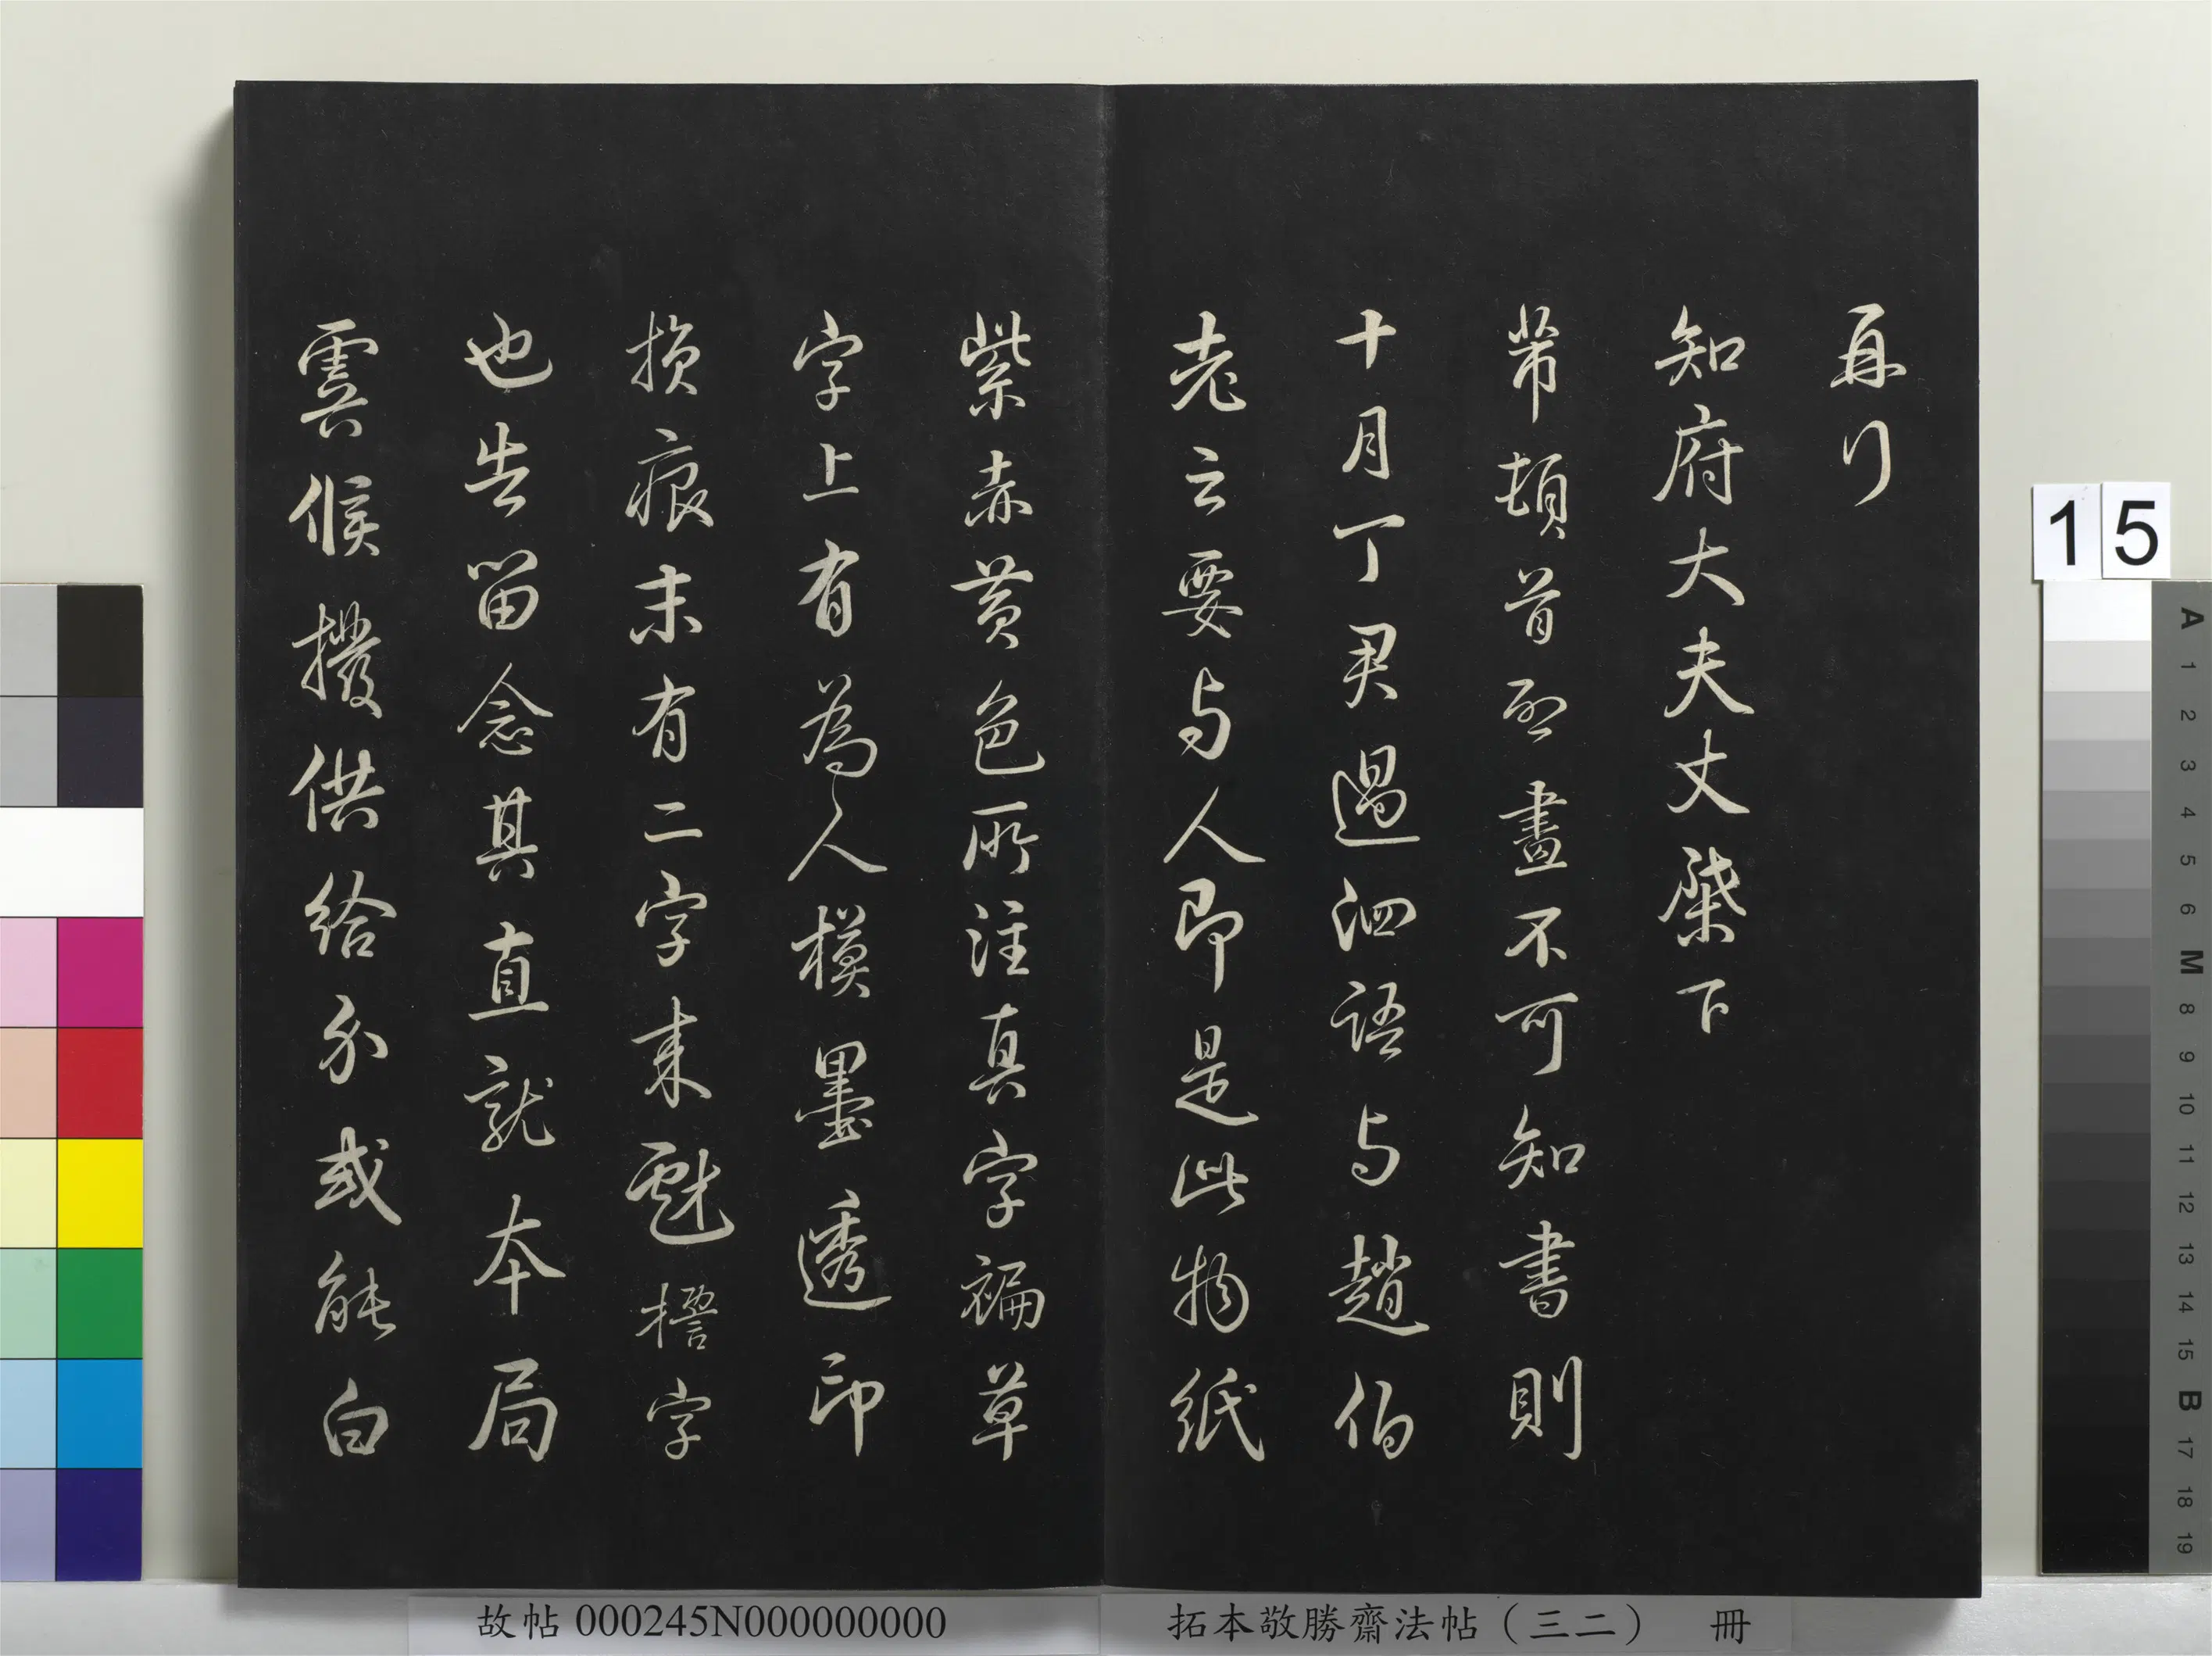 再拜
知府大夫丈下
芾頓首啓畫不可知書則
十月丁君過泗語与趙伯
老云要与人即是此物紙
紫赤黃色所注真字褊草
字上有為人模墨透印
損痕末有二字來戲字
也告留念其直就本局
虞候撥供給尓或能白
15
故帖 000245N000000000
拓本敬勝齋法帖（三二） 冊
A 1 2 3 4 5 6 M 8 9 10 11 12 13 14 15 B 17 18 19